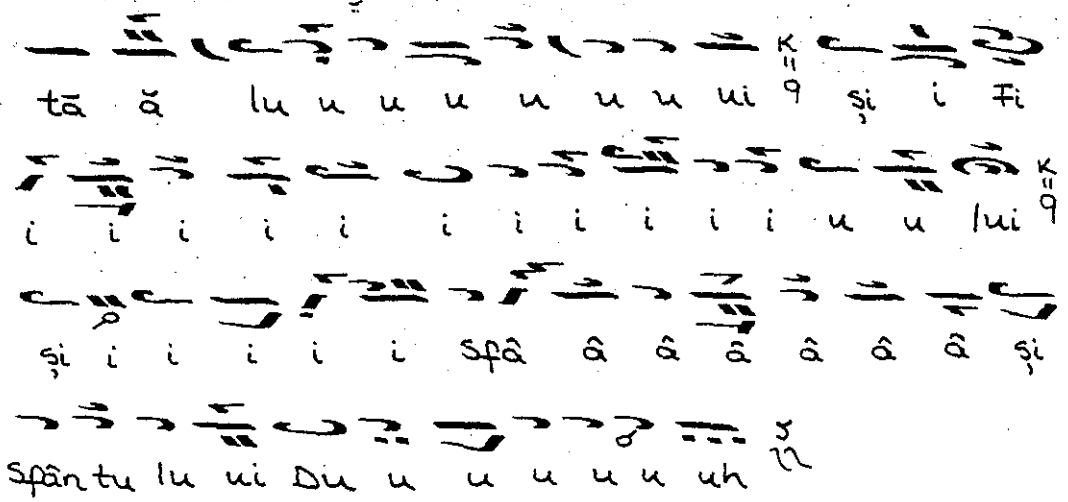 tă ă lu u u u u u u ui și i Fi
i i i i i i i i i i i u u lui
și i i i i i Sfâ â â â â â â și
Sfân tu lu ui Du u u u u u uh